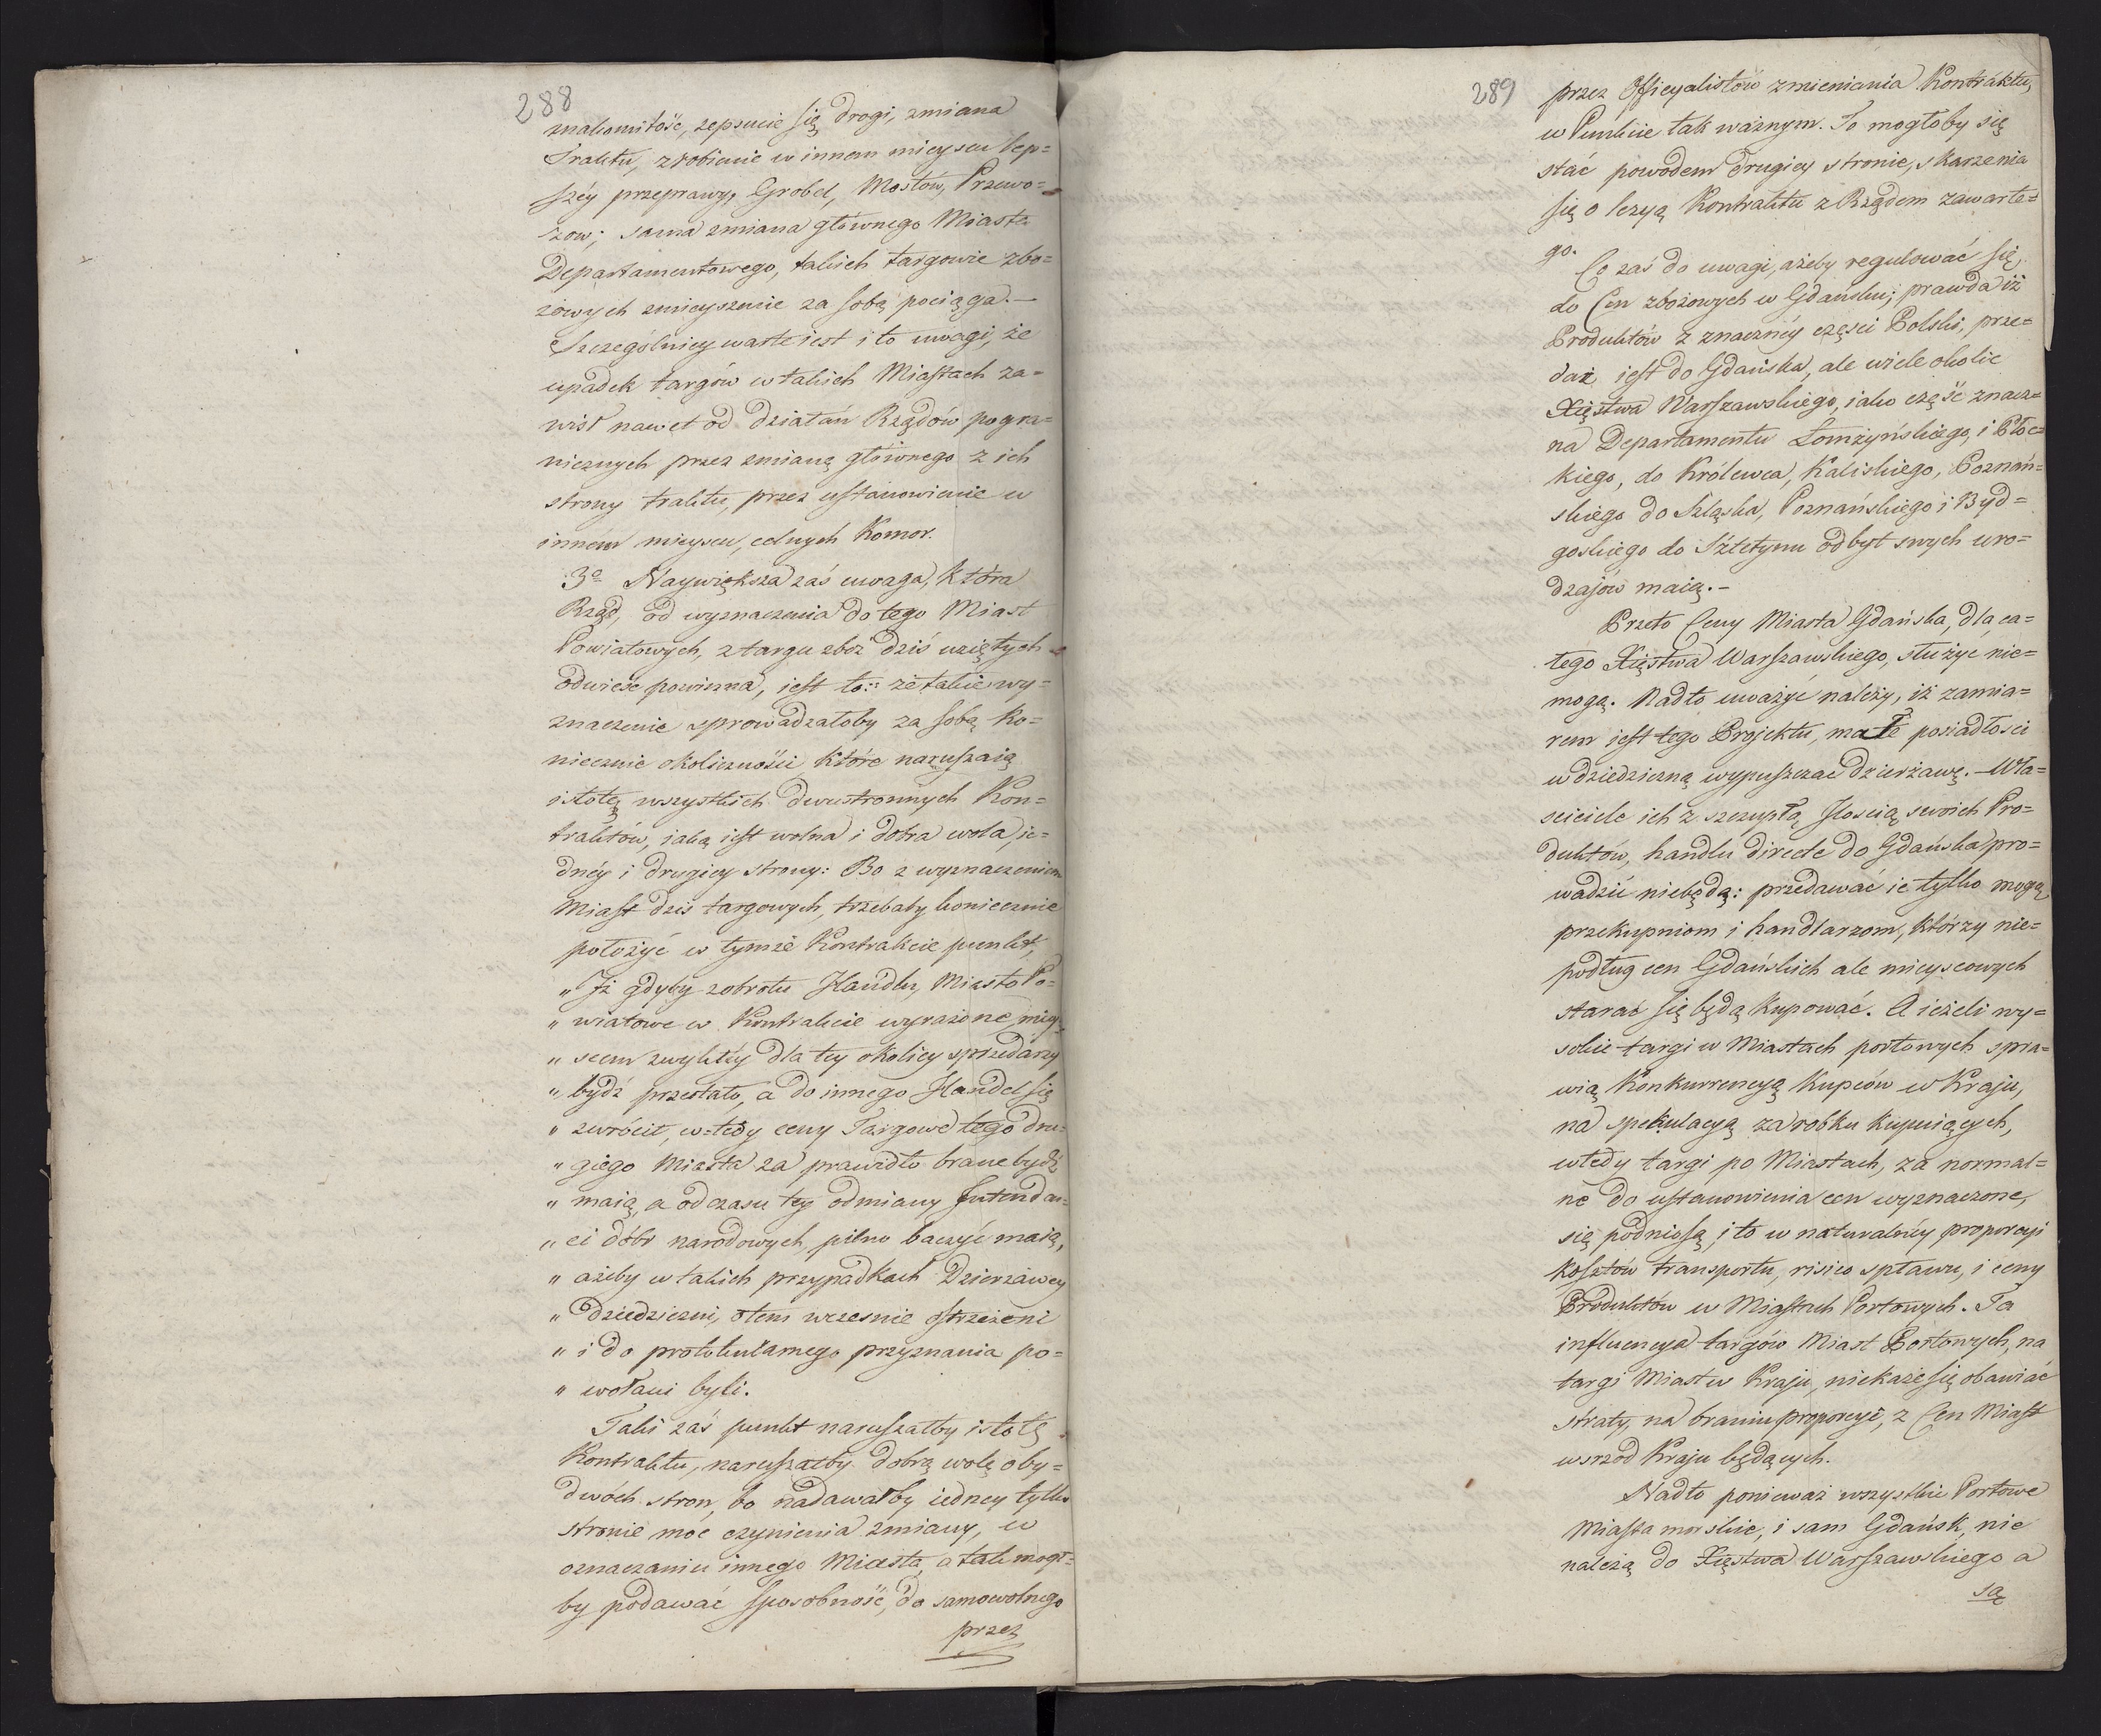 288
znakomitość, zepsucie się drogi, zmiana
Traktu, zrobienie w innem mieyscu lep=
széy przeprawy, Grobel, Mostów, Przewo=
zow; sama zmiana głównego Miasta
Departamentowego, takich targowie zbo=
żowych zmieyszenie za sobą pociąga.—
Szczególniey warte iest i to uwagi, że
upadek targów w takich Miastach za=
wisł nawet od działań Rządów pogra=
nicznych przez zmianą głównego z ich
strony traktu, przez ustanowienie w
innem mieyscu, celnych Komor.
3o Naywiększa zaś uwaga, która
Rząd, od wyznaczenia do tego Miast
Powiatowych, z targu zboż dziś wziętych
odwieśc powinna, jest to: że takie wy=
znaczenie sprowadzałoby za sobą ko=
niecznie okoliczności które naruszaią
istotę wszystkich dwustronnych Kon=
traktów, iaką iest wolna i dobra wola, ie=
dnéy i drugiey strony: Bo z wyznaczeniem
Miast dziś targowych, trzebaby koniecznie
położyć w tymże Kontrakcie punkt,
„ Iż gdyby z obrotu Handlu, Miasto Po=
„ wiatowe w Kontrakcie wyrażone, miey=
„ scem zwykłéy dla tey okolicy sprzedarzy
„ bydź przestało, a do innego Handel się
„ zwrócił, w=tedy ceny Targowe tego dru=
„ giego Miasta za prawidło brane bydź
„ maią, a od czasu tey odmiany Intendan=
„ ci dóbr narodowych pilno baczyć maią,
„ ażeby w takich przypadkach Dzierżawcy
„ Dziedziczni, otem wczesnie ostrzeżeni
„ i do protokularnego przyznania po=
„ wołani byli.
Taki zaś punkt naruszałby istotę
Kontraktu, naruszałby dobrą wolę oby=
dwóch stron, bo nadawałby iedney tylko
stronie moc czynienia zmiany, w
oznaczaniu innego Miasta, a tak mogł=
by podawać sposobność, do samowolnego
przez
289
przez Officyalistów zmieniania Kontraktu,
w Punkcie tak ważnym. To mogłoby się
stać powodem drugiey stronie, skarzenia
się o lezyą Kontraktu z Rządem zawarte=
go.
Co zaś do uwagi, ażeby regulować się,
do Cen zbożowych w Gdańsku; prawda iż
Produktów z znacznéy części Polski, prze=
daż iest do Gdańska, ale wiele okolic
Xięstwa Warszawskiego, iako część znacz=
na Departamentu Łomżyńskiego, i Płoc=
kiego, do Królewca, Kaliskiego, Poznań=
skiego do Szląska, Poznańskiego i Byd=
goskiego do Sztetynu odbyt swych uro=
dzajów maią.—
Przeto Ceny Miasta Gdańska, dla ca=
łego Xięstwa Warszawskiego, służyć nie=
mogą. Nadto uważyć należy, iż zamia=
rem iest tego Projektu, małe posiadłości
w dziedziczną wypuszczać dzierżawę.— Wła=
ściciele ich z szczupłą Ilością swoich Pro=
duktów, handlu directe do Gdańska pro=
wadzić niebędą: przedawać ie tylko mogą
przekupniom i handlarzom, którzy nie=
podług cen Gdańskich ale mieyscowych
starać się będą kupować. A ieżeli wy=
sokie targi w Miastach portowych spra=
wią Konkurrencyą Kupców w Kraju,
na spekulacyą zarobku kupuiących,
wtedy targi po Miastach, za normal=
ne do ustanowienia cen wyznaczone,
się podniosą, i to w naturalnéy proporcyi
kosztów transportu, risico spławu, i ceny
Produktów w Miastach Portowych. Ta
influencya targów Miast Portowych, na
targi Miast w Kraju, niekaże się obawiać
straty, na braniu proporcyi, z Cen Miast
wsrzód Kraju będących.
Nadto ponieważ wszystkie Portowe
Miasta morskie, i sam Gdańsk, nie
należą do Xięstwa Warszawskiego a
są